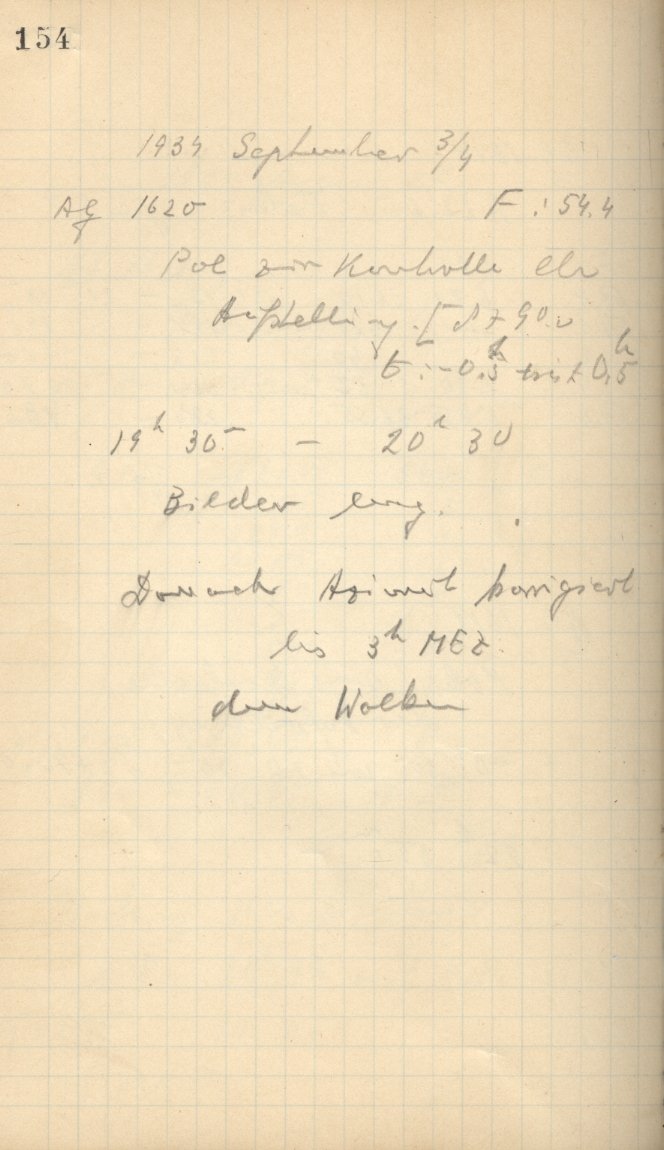 154
1934 September 3/4
AG 1620 F: 54.4
Pol zur Kontrolle der
Aufstellung. [δ + 90.0
t: -0.5h bis + 0.5h
19h 30 – 20h 30
Bilder lang.
Danach Azimut korrigiert
bis 3h MEZ.
dann Wolken